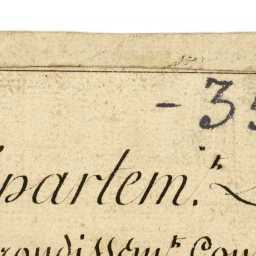 - 35
partem.t
rondissem.t Con